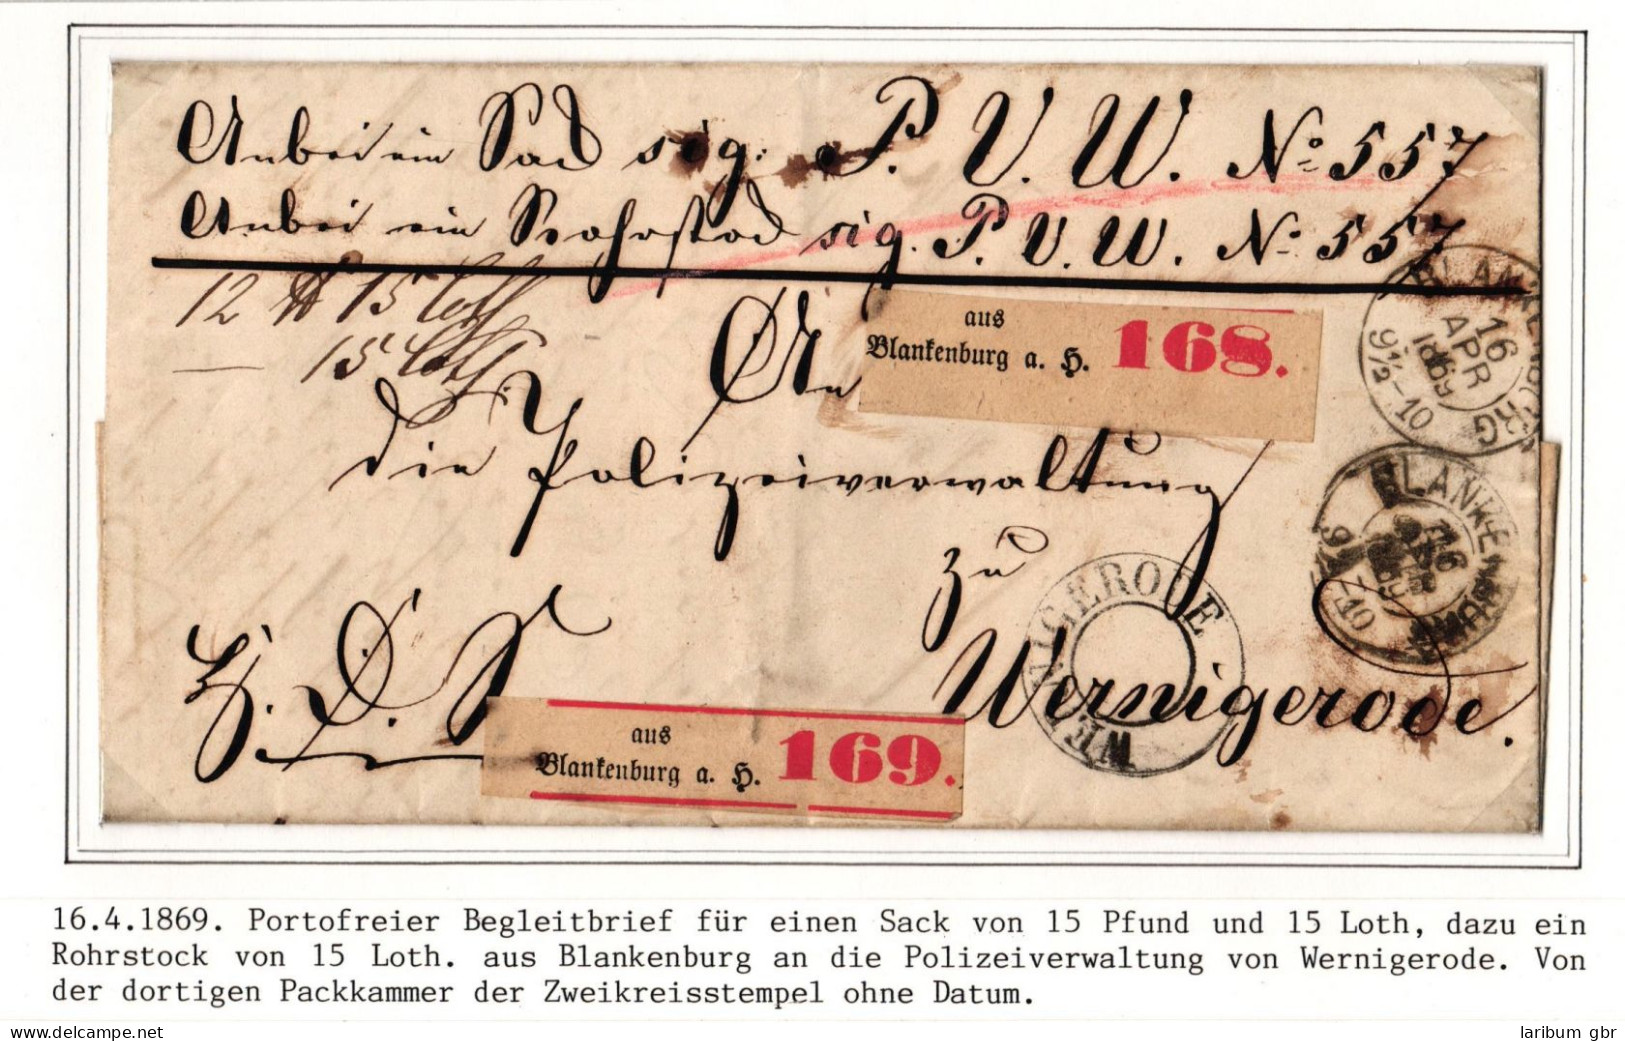 Anbei ein Sack sig: P. V. W. No 557
Anbei ein Rohrstock sig. P. V. W. No 557
12 ℔ 15 Loth
— 15 Loth
An
die Polizeiverwaltung
zu
Wernigerode.
H. D. S.
aus
Blankenburg a. H. 168.
aus
Blankenburg a. H. 169.
BLANKENBURG
16
APR
1869
9½-10
BLANKEN
16
APR
1869
9½-10
WERNIGERODE
16.4.1869. Portofreier Begleitbrief für einen Sack von 15 Pfund und 15 Loth, dazu ein
Rohrstock von 15 Loth. aus Blankenburg an die Polizeiverwaltung von Wernigerode. Von
der dortigen Packkammer der Zweikreisstempel ohne Datum.
www.delcampe.net
laribum gbr